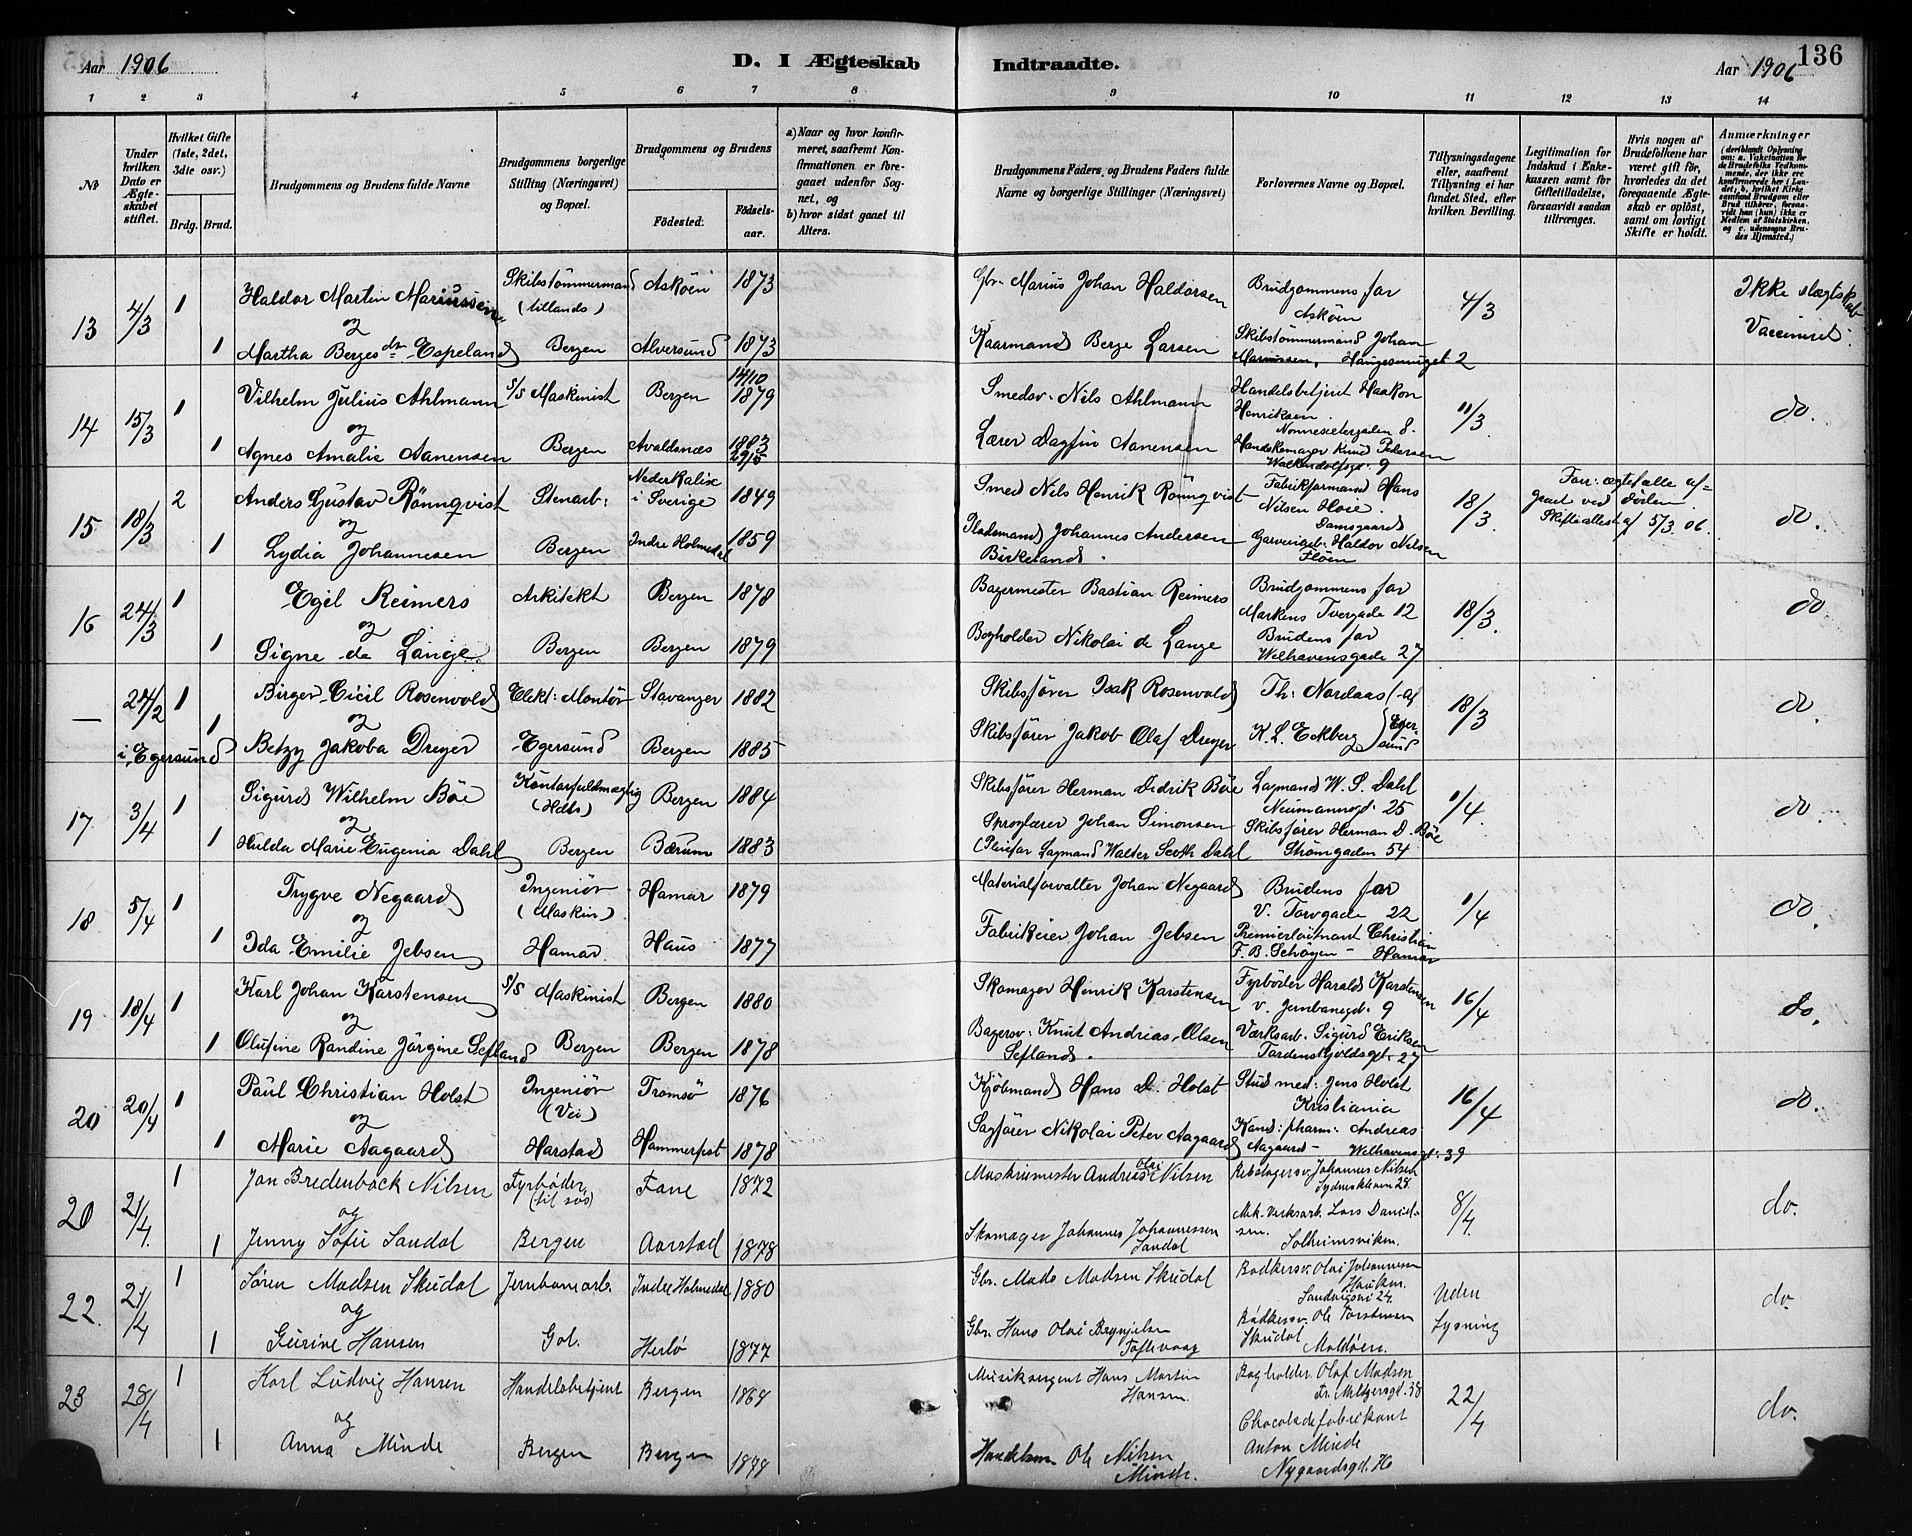 Aar 1906
D. I Ægteskab Indtraadte.
Aar 1906
136
1 2 3 4 5 6 7 8 9 10 11 12 13 14
№
Under hvilken Dato er Ægteskabet stiftet.
Hvilket Gifte (1ste, 2det, 3die osv.)
Brdg. Brud.
Brudgommens og Brudens fulde Navne
Brudgommens borgerlige Stilling (Næringsvei) og Bopæl.
Brudgommens og Brudens
Fødested.
Fødselsaar.
a) Naar og hvor konfirmeret, saafremt Konfirmationen er foregaaet udenfor Sognet, og
b) hvor sidst gaaet til Alters.
Brudgommens Faders, og Brudens Faders fulde Navne og borgerlige Stillinger (Næringsvei)
Forlovernes Navne og Bopæl.
Tillysningsdagene eller, saafremt Tillysning ei har fundet Sted, efter hvilken Bevilling.
Legitimation for Indskud i Enkekassen samt for Giftetilladelse, forsaavidt saadan tiltrænges.
Hvis nogen af Brudefolkene har været gift før, hvorledes da det foregaaende Ægteskab er opløst, samt om lovligt Skifte er holdt.
Anmærkninger (deriblandt Oplysning om: a. Vakcination for de Brudefolks Vedkommende, der ikke ere konfirmerede her i Landet; b. hvilket Kirkesamfund Brudgom eller Brud tilhører, forsaavidt han (hun) ikke er Medlem af Statskirken, og c. udensogns Brudes Hjemsted.)
13 4/3 1 Haldor Martin Mariussen Skibstømmermand (tillands) Askøen 1873 Gbr. Marius Johan Haldorsen Brudgommens far Askøen 4/3 Ikke slægtskab
og
1 Martha Bergesdtr Espeland Bergen Alversund 1873 Kaarmand Berge Larsen Skibstømmermand Johan Mariussen, Haugesmuget 2 Vaccineret.
14 15/3 1 Vilhelm Julius Ahlmann s/s Maskinist Bergen 14/10 1879 Smedsv. Nils Ahlmann Handelsbetjent Haakon Henriksen Nonnesetergaden 8. 11/3 do.
og
1 Agnes Amalie Aanensen Bergen Avaldsnæs 1883 Lærer Dagfin Aanensen Handskemager Knud Pedersen 9
15 18/3 2 Anders Gustav Rönnqvist Stenarb. Nederkalix i Sverige 1849 Smed Nils Henrik Rönnqvist Fabrikformand Hans Nilsen Hoie Damsgaard 18/3. Forr. ægtefælle afgaaet ved døden Skifteattest af 5/3 06. do.
og
1 Lydia Johannesen Bergen Indre Holmedal 1859 Pladsmand Johannes Andersen Birkeland. Garveriarb. Haldor Nilsen Fløen
16 24/3 1 Egil Reimers Arkitekt Bergen 1878 Bagermester Bastian Reimers Brudgommens far Markens Tvergade 12 18/3. do
og
1 Signe de Lange. Bergen Bergen 1879 Bogholder Nikolai de Lange Brudens far Welhavensgade 27
— 24/2 1 Birger Cicil Rosenvold Elekt: Montör Stavanger 1882 Skibsfører Isak Rosenvold Th: Nordaas (af 18/3 do.
og
i Egersund 1 Betzy Jakoba Dreyer Egersund Bergen 1885 Skibsfører Jakob Olaf Dreyer K. L. Eckberg) Egersund
17 3/4 1 Sigurd Wilhelm Böe Kontorfuldmægtig (Hdls) Bergen 1884 Skibsfører Herman Didrik Böe Lagmand W. S. Dahl Neumannsgd. 25 1/4. do.
og
1 Hulda Marie Eugenia Dahl Bergen Bærum 1883 Sproglærer Johan Simonsen (Pleiefar Lagmand Walter Scott Dahl Skibsfører Herman D. Böe Strömgaden 54
18 5/4 1 Trygve Negaard Ingeniör (Maskin) Hamar 1879 Materialforvalter Johan Negaard Brudens far V. Torvgade 22 1/4 do.
og
1 Ida Emilie Jebsen Hamar Haus 1877 Fabrikeier Johan Jebsen Premierløitnant Christian F. B. Schöyen – Hamar
19 18/4 1 Karl Johan Karstensen s/s Maskinist Bergen 1880 Skomager Henrik Karstensen Fyrbøder Harald Karstensen v. Jernbanegd. 9 16/4 do.
og
1 Olufine Randine Jörgine Sefland Bergen Bergen 1878 Bagersv: Knut Andreas Olsen Sefland. Værksarb. Sigurd Eriksen Tordenskjoldsgt. 27
20 20/4 1 Paul Christian Holst Ingeniör (Vei) Tromsø 1876 Kjøbmand Hans D. Holst Stud med: Jens Holst Kristiania 16/4 do.
og
1 Marie Aagaard Harstad Hammerfest 1878 Sagfører Nikolai Peter Aagaard Kand: pharm: Andreas Aagaard – Welhavensgt. 39
20 21/4. 1 Jan Bredenbock Nilsen Fyrbøder, (til søs) Fane 1872 Maskinmester Andreas Olai Nilsen Rebslagersv. Johannes Nilsen Sydneskleven 28. 8/4. do.
og
1 Jenny Sofie Sandal Bergen Aarstad 1878 Skomager Johannes Johannessen Sandal Mek. Verksarb. Lars Danielsen. Solheimsviken.
22. 21/4 1 Søren Madsen Skudal Jernbanearb. Indre Holmedal 1880 Gbr. Mads Madsen Skudal Bødkersv. Olai Johannessen Sandvigsvei 24. Uden Lysning do.
og
1 Gurine Hansen Gol. Herlø 1877 Gbr. Hans Olai Brynjelsen Toftevaag Bødkersv. Ole Torstensen Skudal Maldøen.
23 28/4 1 Karl Ludvig Hansen Handelsbetjent Bergen 1868 Musiksergent Hans Martin Hansen. Bogholder. Olaf Madsen Fr. Meltzersgt. 38 22/4 do.
og
1 Anna Minde Bergen Bergen 1878 Handelsm Ole Nilsen Minde. Chocoladefabrikant Anton Minde Nygaardsgd.